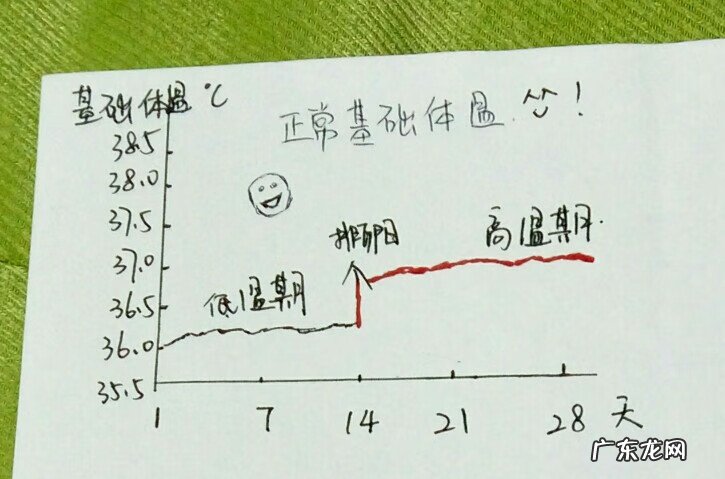 基础体温℃
正常基础体温!
38.5
38.0
37.5
37.0
36.5
36.0
35.5
排卵日
高温期
低温期
1 7 14 21 28 天
广东龙网